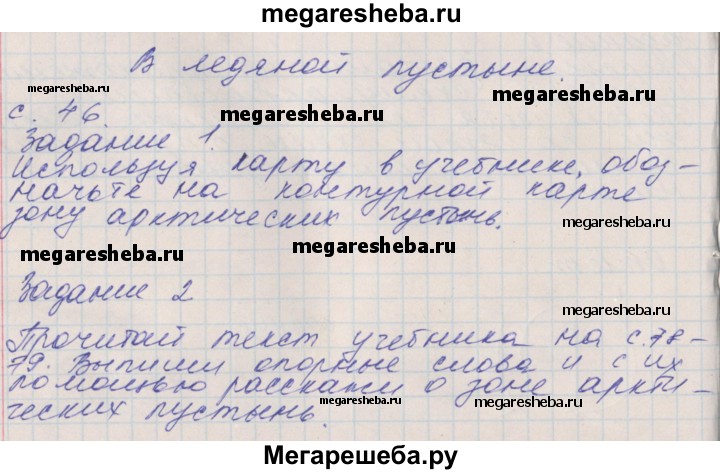 megaresheba.ru
В ледяной пустыне.
megaresheba.ru
megaresheba.ru
с. 46
megaresheba.ru
Задание 1.
Используя карту в учебнике, обоз-
начьте на контурной карте
зону арктических пустынь.
megaresheba.ru
megaresheba.ru
megaresheba.ru
Задание 2
megaresheba.ru
Прочитай текст учебника на с. 78-
79. Выпиши опорные слова и с их
megaresheba.ru
помощью расскажи о зоне аркти-
megaresheba.ru
megaresheba.ru
ческих пустынь.
Мегарешеба.ру